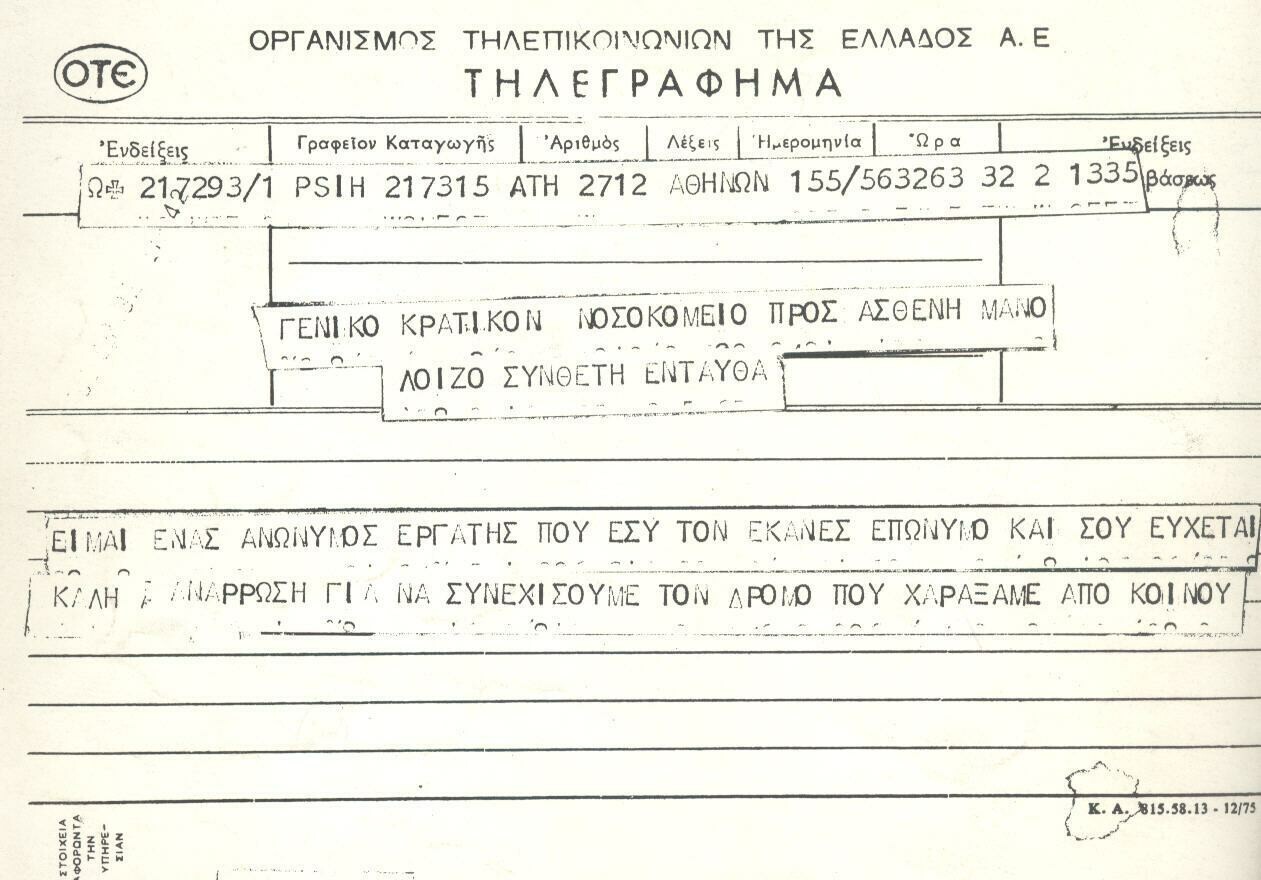 ΟΡΓΑΝΙΣΜΟΣ ΤΗΛΕΠΙΚΟΙΝΩΝΙΩΝ ΤΗΣ ΕΛΛΑΔΟΣ Α. Ε
ΟΤΕ
ΤΗΛΕΓΡΑΦΗΜΑ
Ἐνδείξεις Γραφεῖον Καταγωγῆς Ἀριθμὸς Λέξεις Ἡμερομηνία Ὥρα Ἐνδείξεις
βάσεως
Ω 217293/1 PSIH 217315 ATH 2712 ΑΘΗΝΩΝ 155/563263 32 2 1335
ΓΕΝΙΚΟ ΚΡΑΤΙΚΟΝ ΝΟΣΟΚΟΜΕΙΟ ΠΡΟΣ ΑΣΘΕΝΗ ΜΑΝΟ
ΛΟΙΖΟ ΣΥΝΘΕΤΗ ΕΝΤΑΥΘΑ
ΕΙΜΑΙ ΕΝΑΣ ΑΝΩΝΥΜΟΣ ΕΡΓΑΤΗΣ ΠΟΥ ΕΣΥ ΤΟΝ ΕΚΑΝΕΣ ΕΠΩΝΥΜΟ ΚΑΙ ΣΟΥ ΕΥΧΕΤΑΙ
ΚΑΛΗ ΑΝΑΡΡΩΣΗ ΓΙΑ ΝΑ ΣΥΝΕΧΙΣΟΥΜΕ ΤΟΝ ΔΡΟΜΟ ΠΟΥ ΧΑΡΑΞΑΜΕ ΑΠΟ ΚΟΙΝΟΥ
Κ. Α. 815.58.13 - 12/75
ΣΤΟΙΧΕΙΑ
ΑΦΟΡΩΝΤΑ
ΤΗΝ
ΥΠΗΡΕ-
ΣΙΑΝ